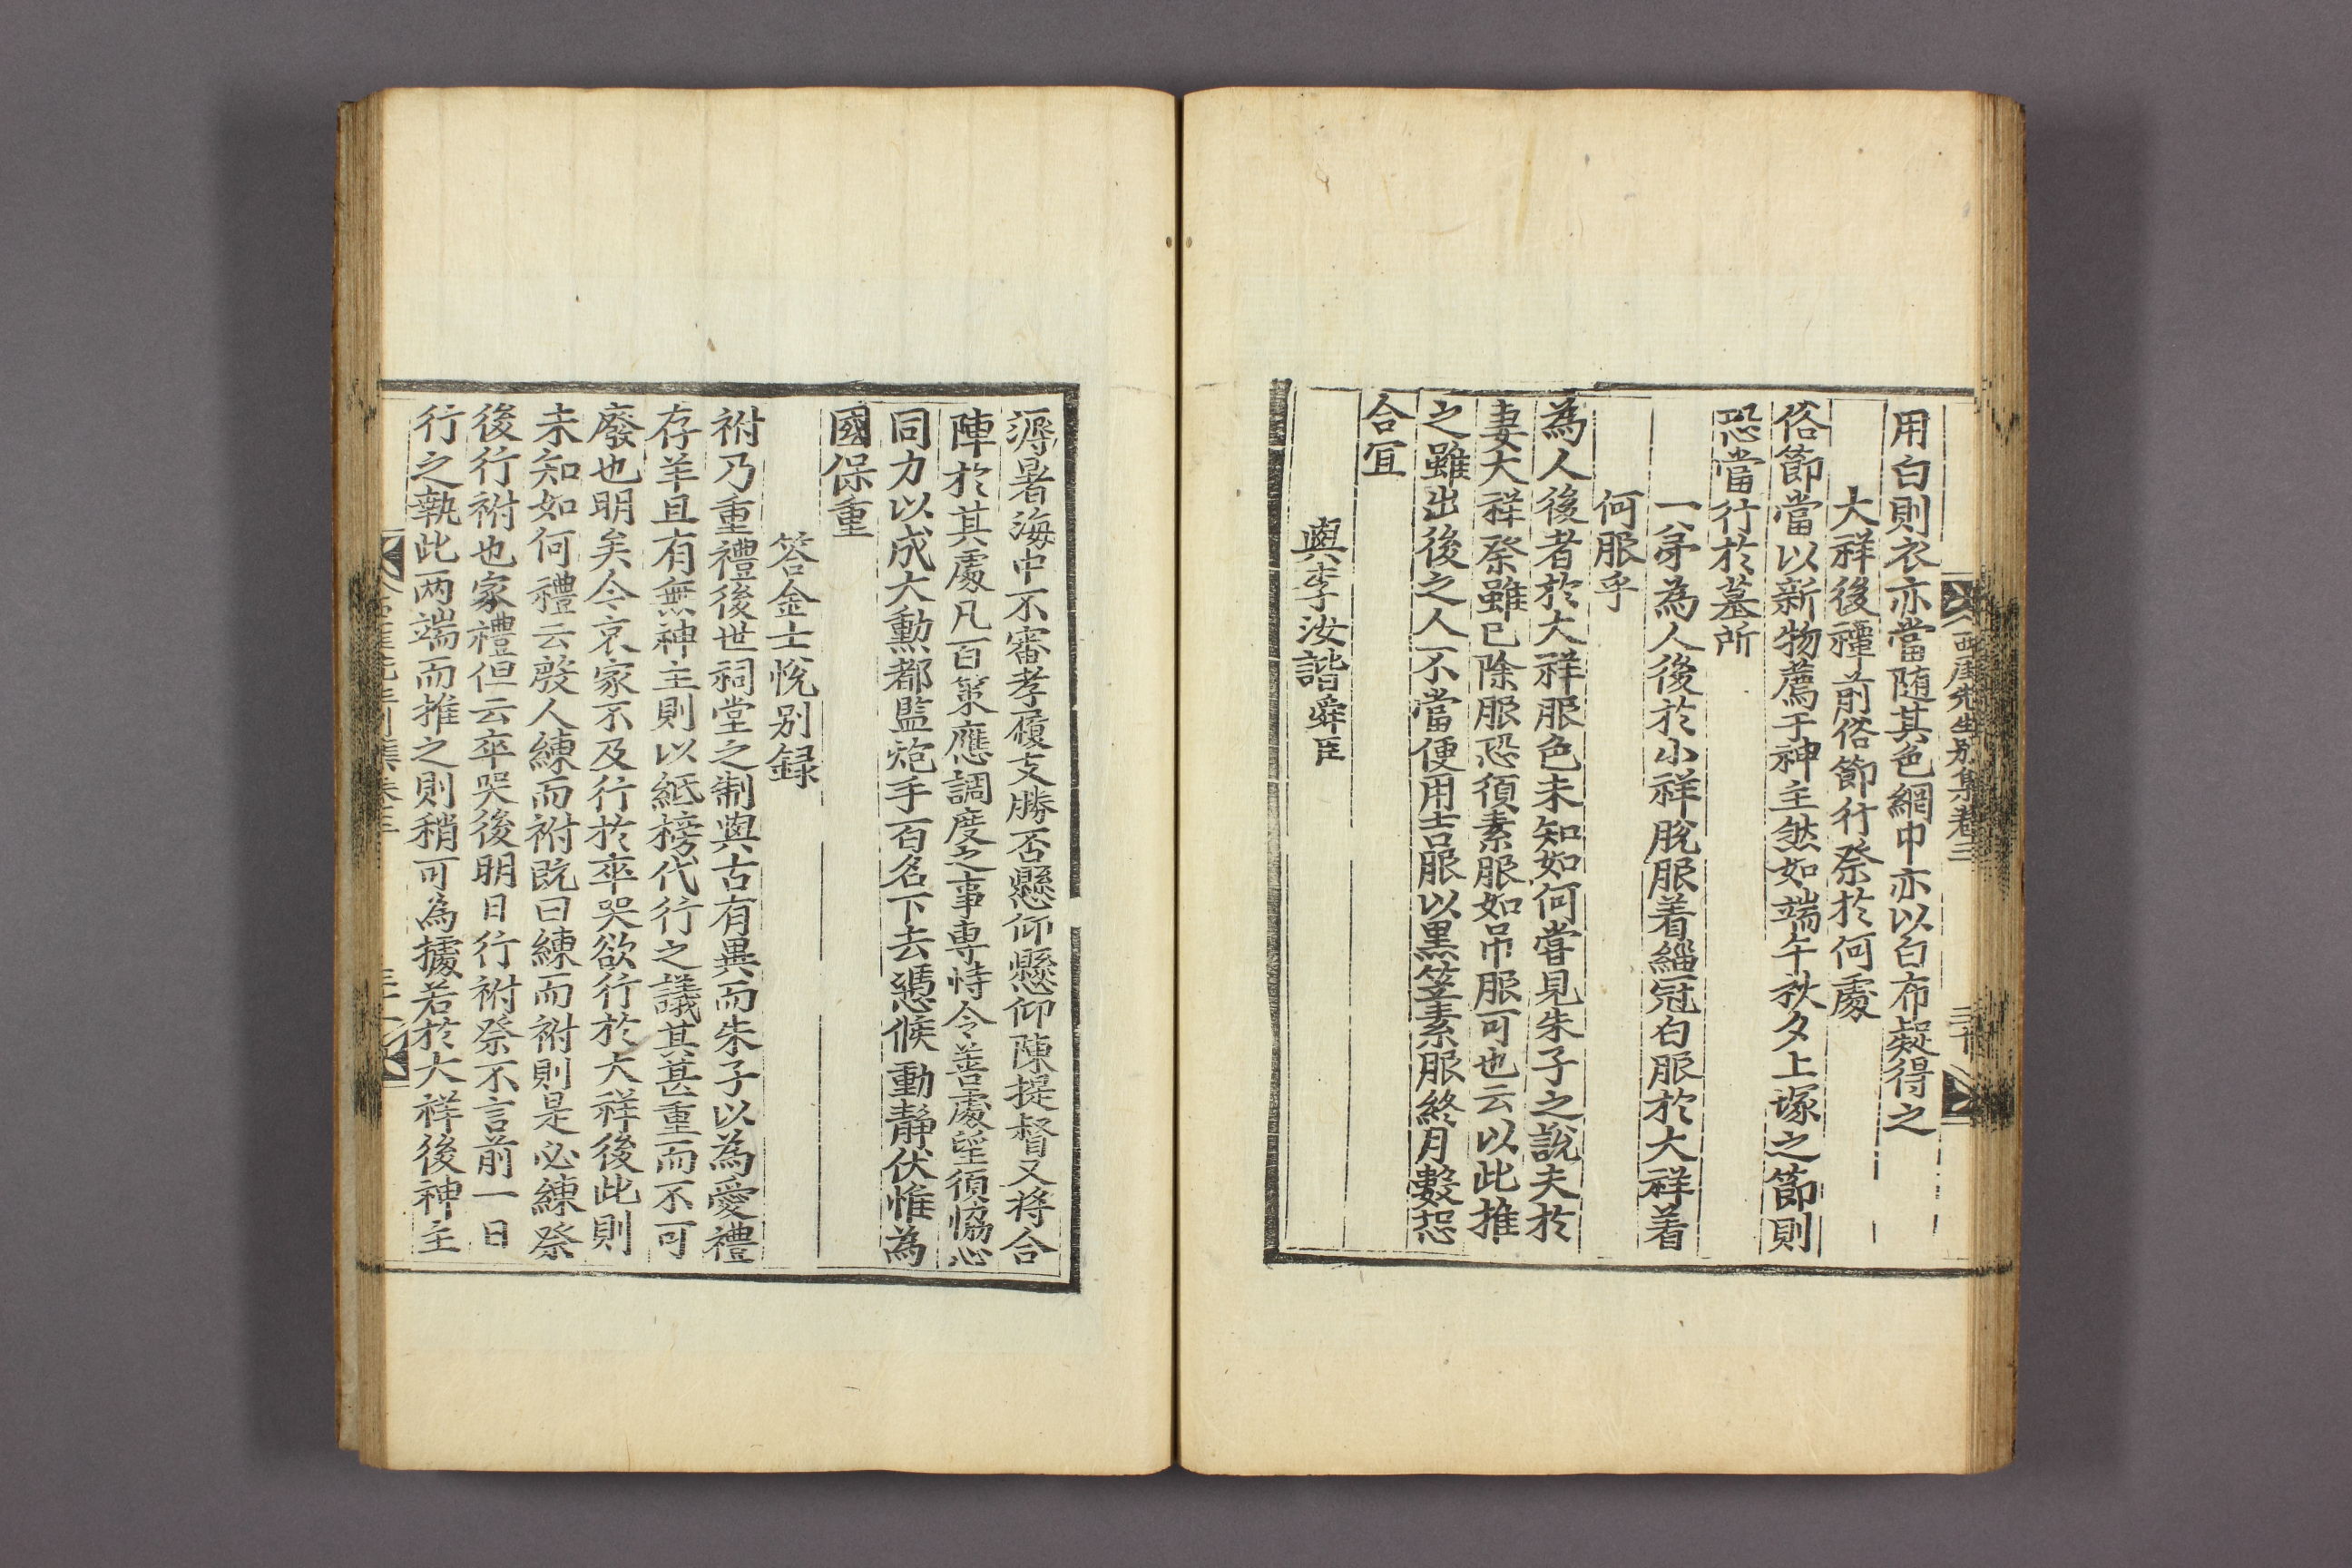 西厓先生別集卷三
三十
用白則衣亦當随其色網巾亦以白布凝得之
大祥後禫前俗節行祭於何處
俗節當以新物薦于神主然如端午秋夕上塚之節則
恐當行於墓所
一弟為人後於小祥脫服着緇冠白服於大祥着
何服乎
為人後者於大祥服色未知如何嘗見朱子之說夫於
妻大祥祭雖已除服恐須素服如吊服可也云以此推
之雖出後之人不當便用吉服以黒笠素服終月數恐
合宜
與李汝諧舜臣
溽暑海中不審孝履支勝否懸仰懸仰陳提督又将合
陣於其處凡百策應調度之事専恃令善處望須恊心
同力以成大勳都監炮手一百名下去憑候動静伏惟為
國保重
答金士悅别録
祔乃重禮後世祠堂之制與古有異而朱子以為愛禮
存羊且有無神主則以紙榜代行之議其甚重而不可
廢也明矣今哀家不及行於卒哭欲行於大祥後此則
未知如何禮云殷人練而祔既曰練而祔則是必練祭
後行祔也家禮但云卒哭後明日行祔祭不言前一日
行之執此两端而推之則稍可為據若於大祥後神主